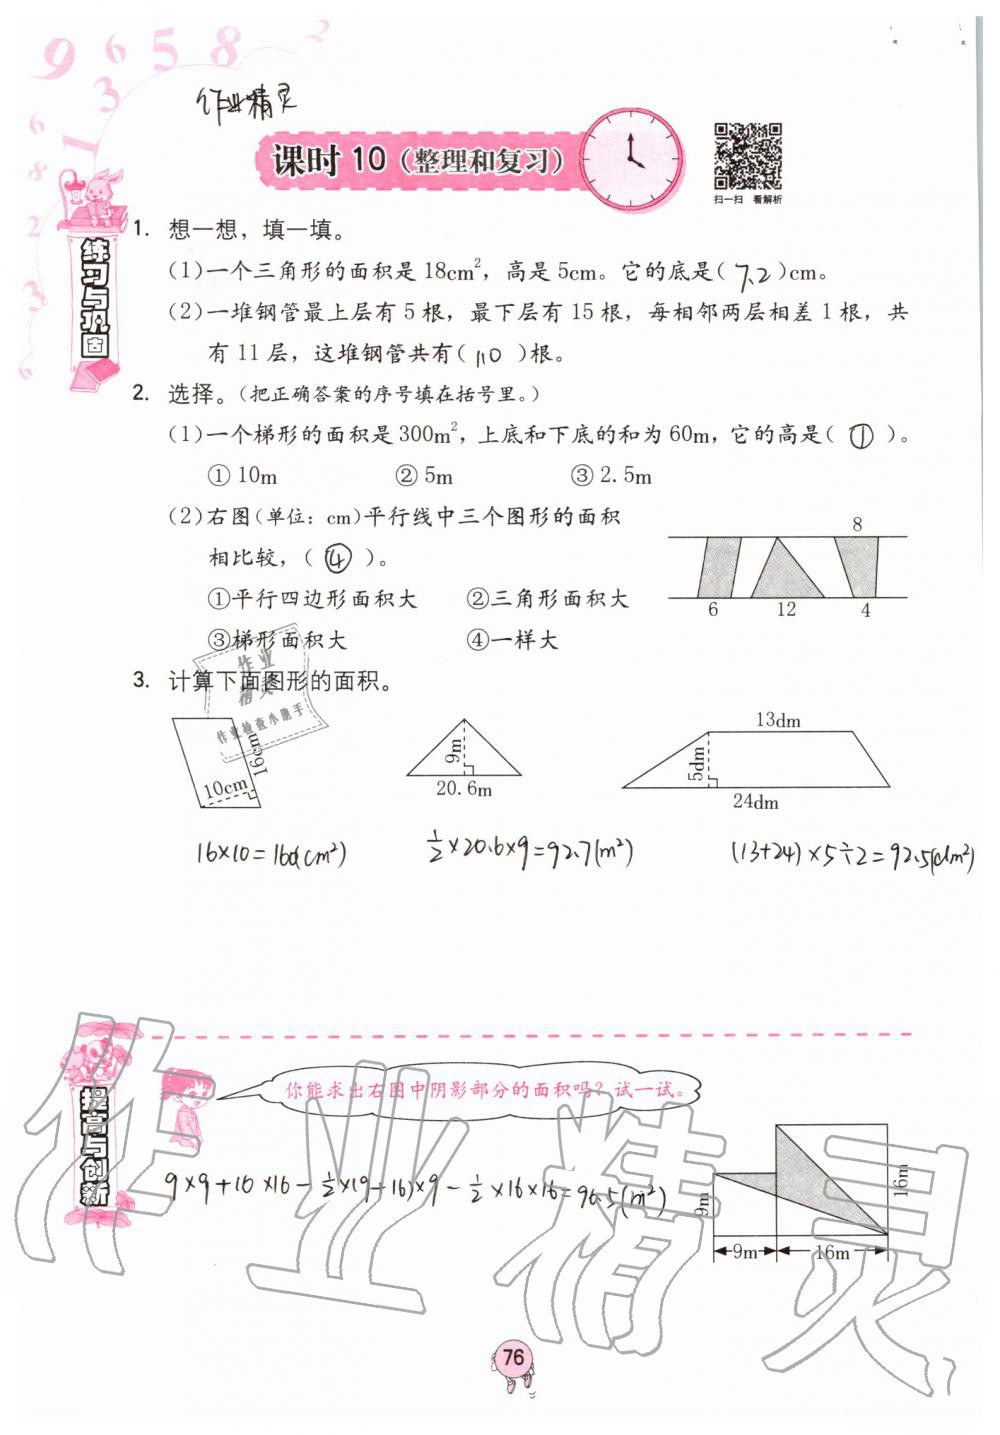 9 6 5 8 2
3
6 1
8
2
3
6
作业精灵
课时 10（整理和复习）
扫一扫 看解析
练习与巩固
1. 想一想，填一填。
(1)一个三角形的面积是18cm²，高是5cm。它的底是( 7.2 )cm。
(2)一堆钢管最上层有5根，最下层有15根，每相邻两层相差1根，共
有11层，这堆钢管共有( 110 )根。
2. 选择。（把正确答案的序号填在括号里。）
(1)一个梯形的面积是300m²，上底和下底的和为60m，它的高是( ① )。
① 10m ② 5m ③ 2.5m
(2)右图(单位：cm)平行线中三个图形的面积
相比较，( ④ )。
①平行四边形面积大 ②三角形面积大
③梯形面积大 ④一样大
8
6 12 4
作业
精灵
作业检查小助手
3. 计算下面图形的面积。
10cm 16cm
9m
20.6m
13dm
5dm
24dm
16×10=160(cm²)
½×20.6×9=92.7(m²)
(13+24)×5÷2=92.5(dm²)
提高与创新
你能求出右图中阴影部分的面积吗？试一试。
9×9+16×16-½×(9+16)×9-½×16×16=96.5(m²)
9m 16m
9m 16m
作业精灵
76